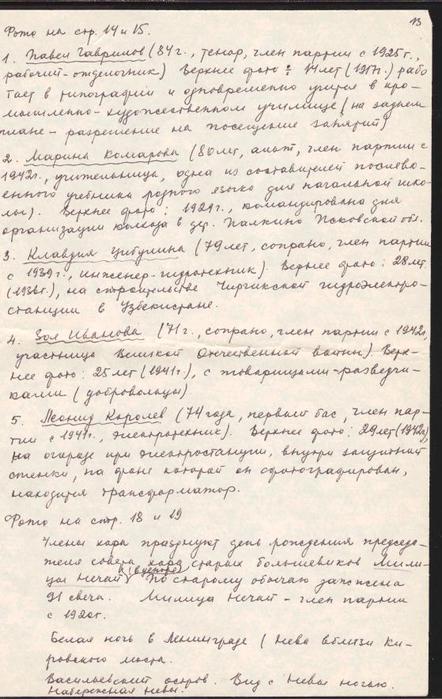 13
Фото на стр. 14 и 15.
1. Павел Гаврилов (84 г., тенор, член партии с 1925 г.,
рабочий-отделочник) Верхнее фото: 14 лет (1917 г.) рабо
тает в типографии и одновременно учится в про-
мышленно-художественном училище (на заднем
плане - разрешение на посещение занятий)
2. Марина Комарова (80 лет, альт, член партии с
1942 г., учительница, одна из составителей послево-
енного учебника родного языка для начальной шко-
лы). Верхнее фото: 1929 г., командирована для
организации колхоза в дер. Палкино Псковской обл.
3. Клавдия Цибулина (79 лет, сопрано, член партии
с 1939 г., инженер-гидротехник). Верхнее фото: 28 лет
(1936 г.), на строительстве Чирчикской гидроэлектро-
станции в Узбекистане.
4. Зоя Иванова (71 г., сопрано, член партии с 1942 г.,
участница Великой Отечественной войны) Верх-
нее фото: 25 лет (1941 г.), с товарищами-разведчи-
ками (добровольцы)
5. Леонид Королев (74 года, первый бас, член пар-
тии с 1941 г., электротехник). Верхнее фото: 29 лет (1942 г.),
на огороде при электростанции, внутри защитной
стенки, на фоне которой он сфотографирован,
находится трансформатор.
Фото на стр. 18 и 19
Члены хора празднуют день рождения председа-
теля совета хора старых большевиков Мили-
цы Нечай (в центре). По старому обычаю зажжена
91 свеча. Милица Нечай - член партии
с 1920 г.
Белая ночь в Ленинграде (Нева вблизи Ки-
ровского моста.
Васильевский остров. Вид с Невы ночью.
Набережная Невы.